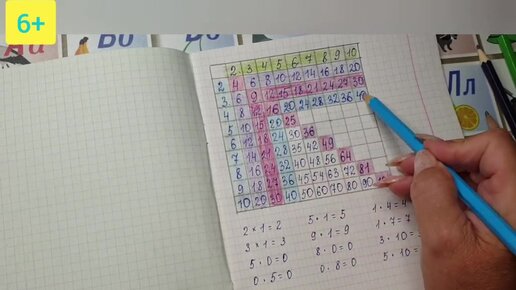 6+
2 3 4 5 6 7 8 9 10
2 4 6 8 10 12 14 16 18 20
3 6 9 12 15 18 21 24 27 30
4 8 12 16 20 24 28 32 36 40
5 10 15 20 25
6 12 18 24 30 36
7 14 21 28 35 42 49
8 16 24 32 40 48 56 64
9 18 27 36 45 54 63 72 81
10 20 30 40 50 60 70 80 90
2 × 1 = 2 5 · 1 = 5 1 · 4 = 4
3 × 1 = 3 9 · 1 = 9 1 · 7 = 7
5 · 0 = 0 8 · 0 = 0 3 · 10 =
0 · 5 = 0 0 · 8 = 0 5 · 10 =
Лл